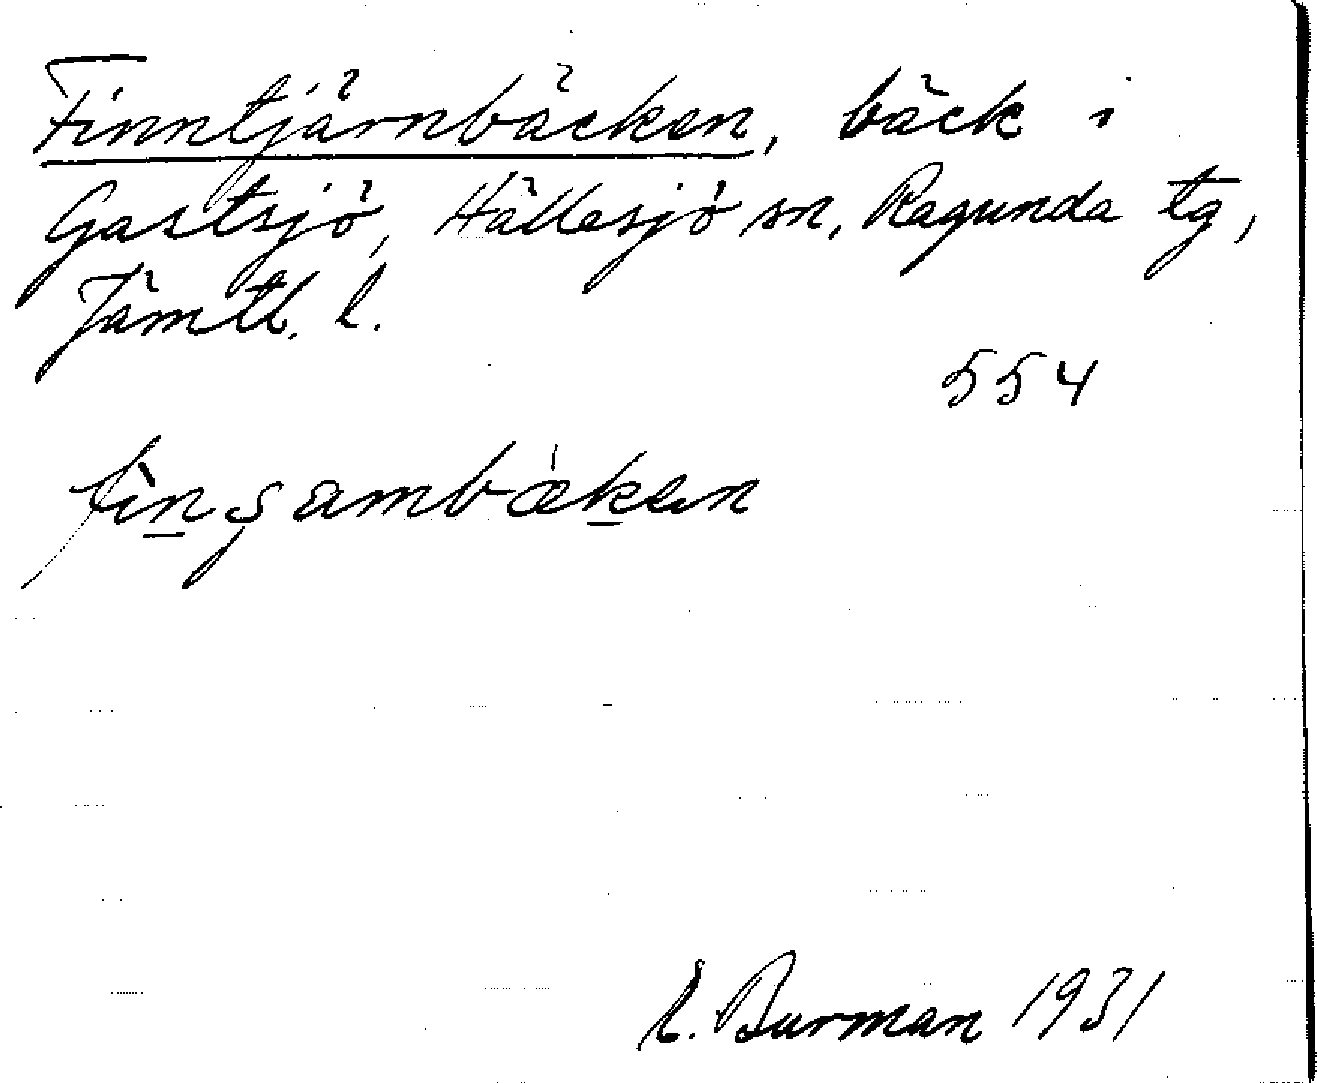 Finntjärnbäcken, bäck i
Gastsjö, Hällesjö sn, Ragunda tg,
Jämtl. l.
554
fìn̠şambǽk̠en
E. Burman 1931